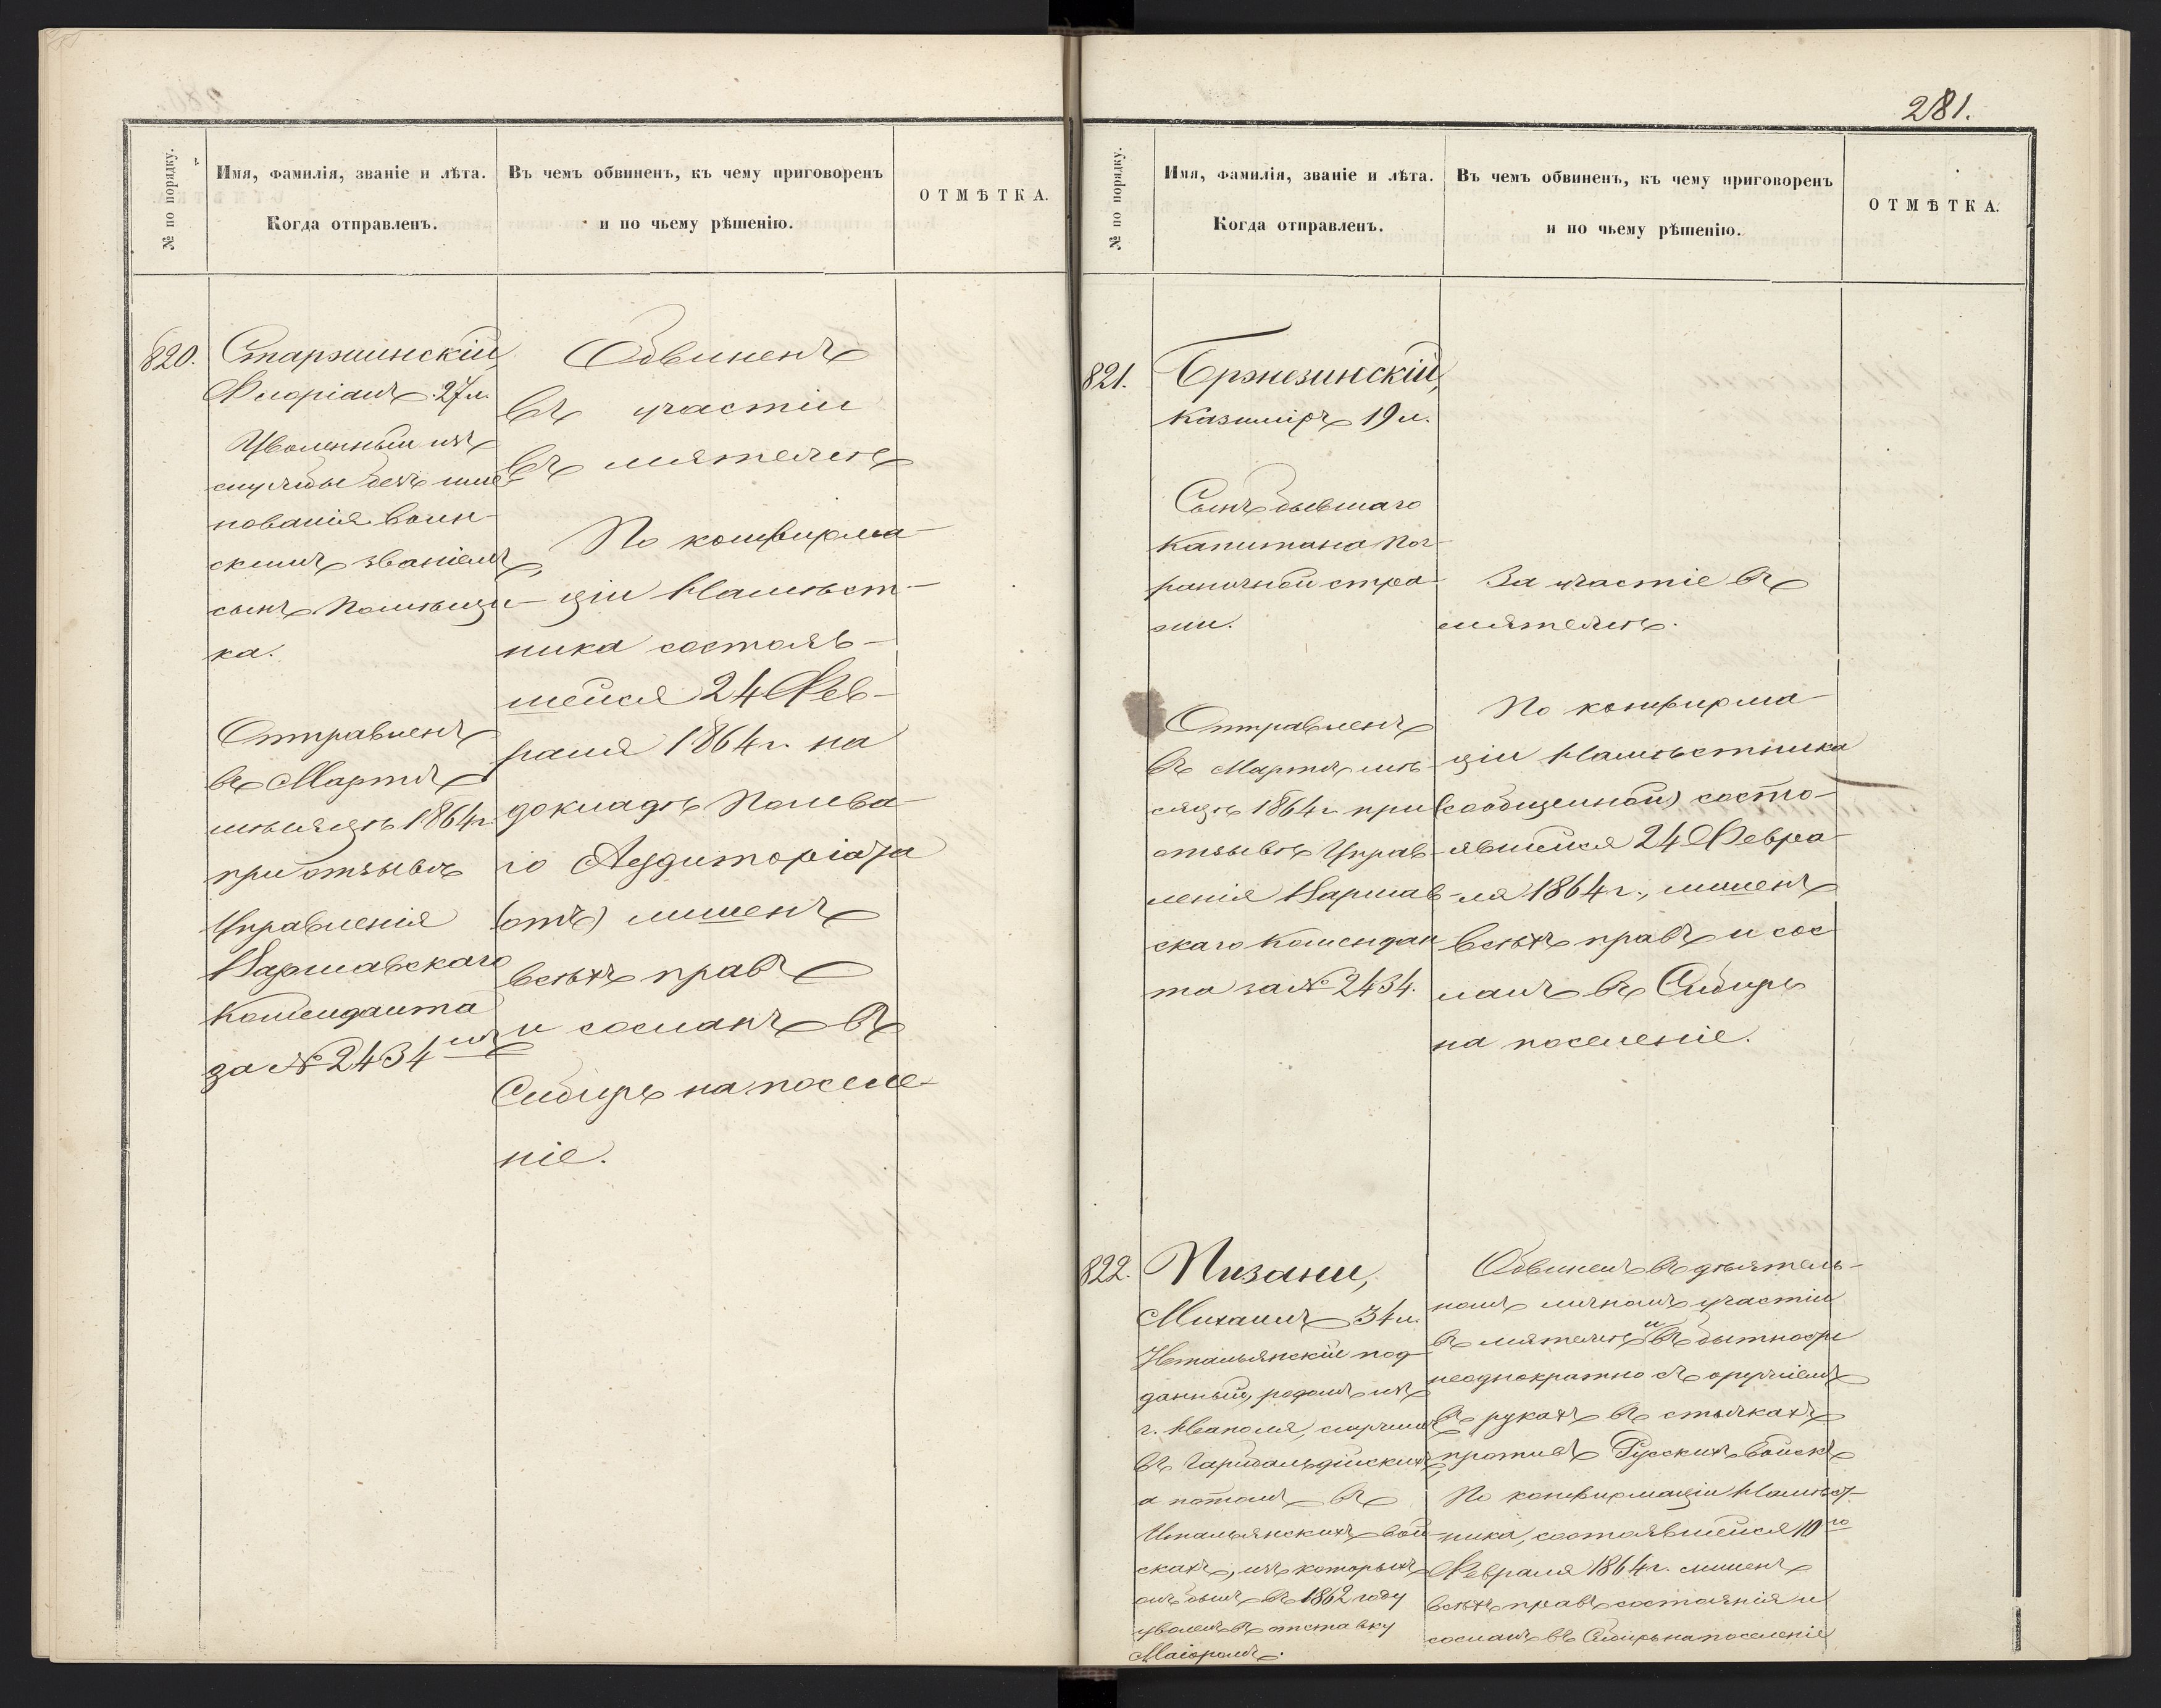 № по порядку.
Имя, фамилія, званіе и лѣта.
Когда отправленъ.
Въ чемъ обвиненъ, къ чему приговоренъ
и по чьему рѣшенію.
ОТМѢТКА.
820.
Старжинскій,
Флоріанъ 27 л.
Уволенный изъ
службы безъ име-
нованія воин-
скимъ званіемъ,
сынъ Помѣщи-
ка.
Отправленъ
въ Мартѣ
мѣсяцѣ 1864 г.
при отзывѣ
Управленія
Варшавскаго
Коменданта
за № 2434мъ
Обвиненъ
въ участіи
въ мятежѣ
По конфирма-
ціи Намѣст-
ника состояв-
шейся 24 Фев-
раля 1864 г. на
докладѣ Полева-
го Аудиторіата
лишенъ
всѣхъ правъ
и сосланъ въ
Сибирь на поселе-
ніе.
281.
№ по порядку.
Имя, фамилія, званіе и лѣта.
Когда отправленъ.
Въ чемъ обвиненъ, къ чему приговоренъ
и по чьему рѣшенію.
ОТМѢТКА.
821.
Бржезинскій,
Казиміръ 19 л.
Сынъ бывшаго
Капитана пог-
раничной стра-
жи.
Отправленъ
въ Мартѣ мѣ-
сяцѣ 1864 г. при
отзывѣ Управ-
ленія Варшав-
скаго Комендан
та за № 2434.
За участіе въ
мятежѣ.
По конфирма-
ціи Намѣстника
(сообщенной) состо-
явшейся 24 Февра-
ля 1864 г., лишенъ
всѣхъ правъ и сос
ланъ въ Сибирь
на поселеніе.
822.
Пизани,
Михаилъ 34 л.
Итальянскій под-
данный, родомъ изъ
г. Неаполя, служилъ
въ Гарибальдійскихъ,
а потомъ въ
Итальянскихъ вой-
скахъ, изъ которыхъ
онъ былъ въ 1862 году
уволенъ въ отставку
Маіоромъ.
Обвиненъ въ дѣятель-
номъ личномъ участіи
въ мятежѣ и въ бытности
неоднократно съ оружіемъ
въ рукахъ въ стычкахъ
противъ Русскихъ Войскъ
По конфирмаціи Намѣст-
ника, состоявшейся 10го
Февраля 1864 г. лишенъ
всѣхъ правъ состоянія и
сосланъ въ Сибирь на поселеніе